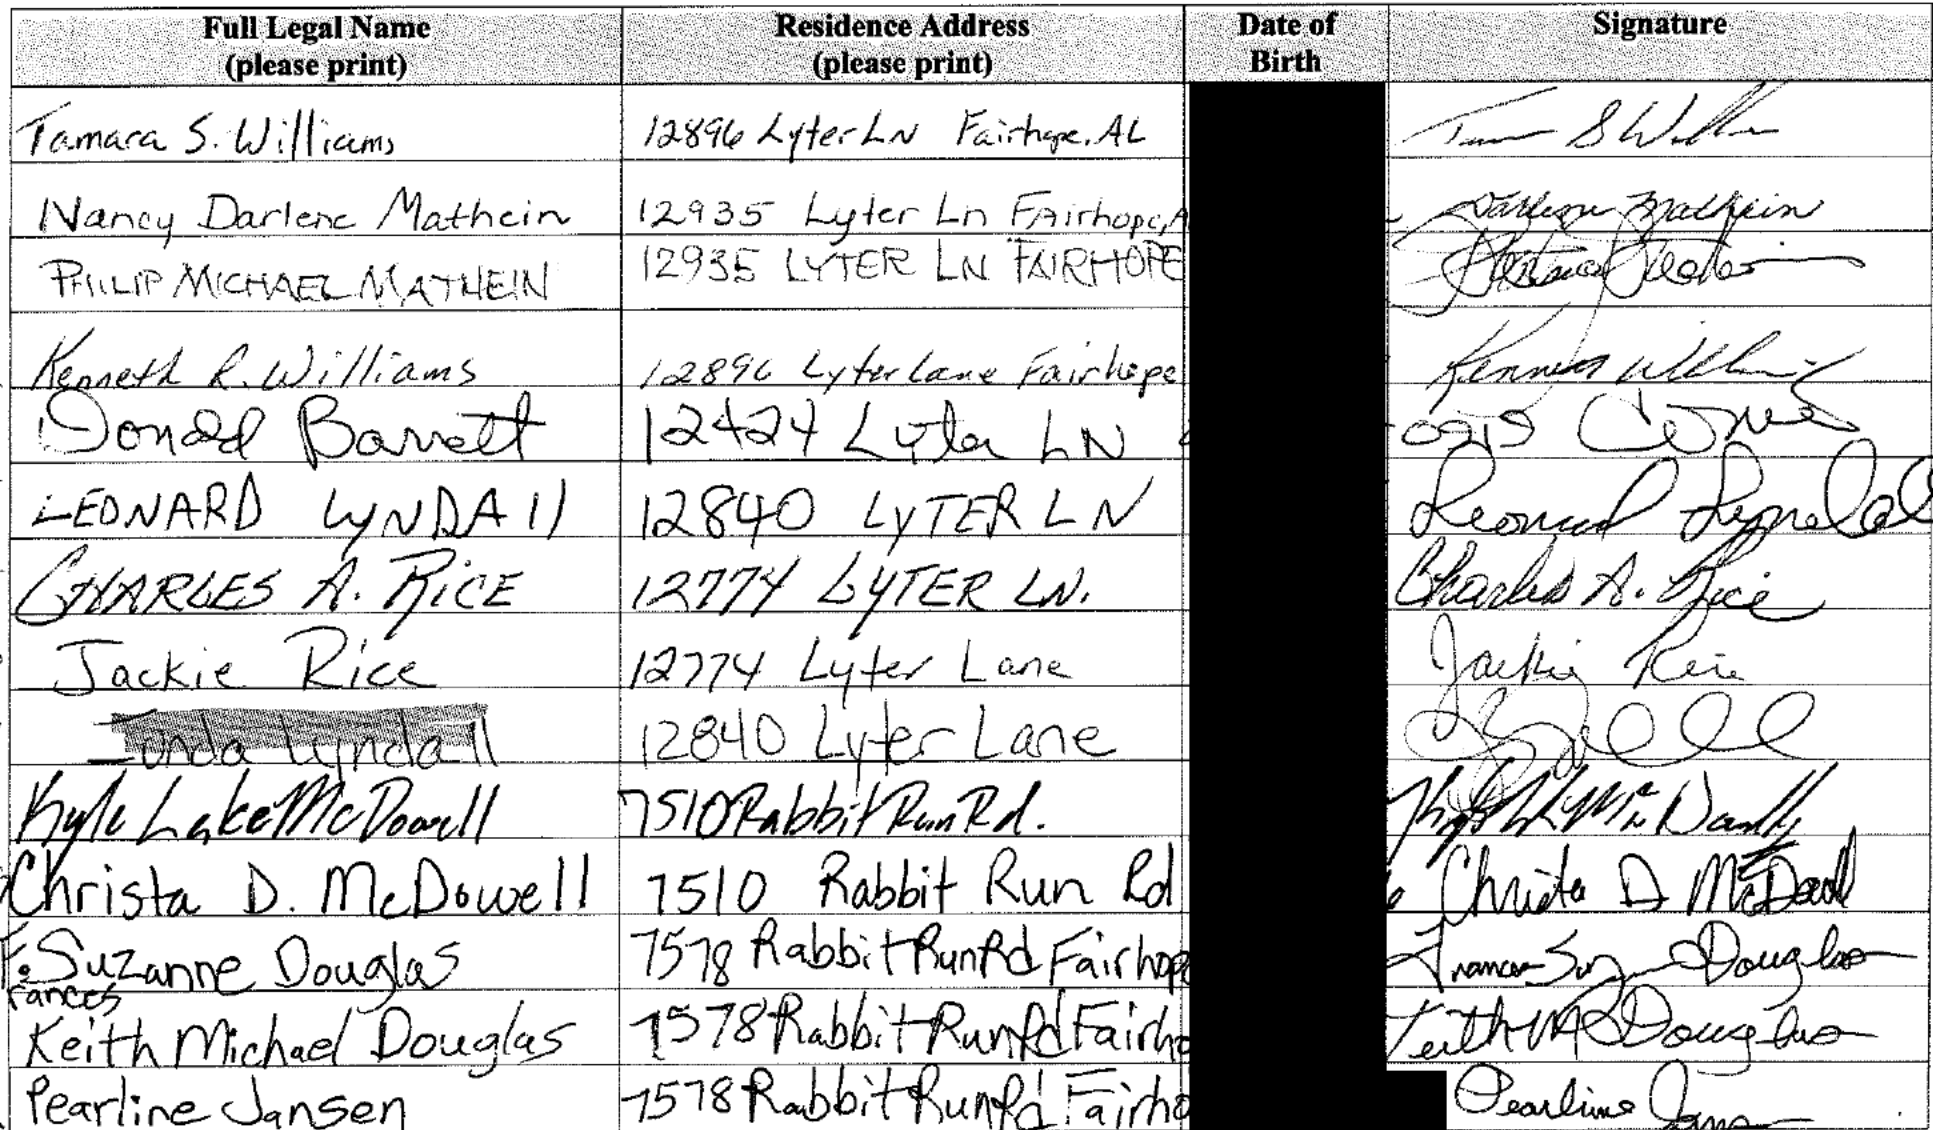 Full Legal Name (please print) Residence Address (please print) Date of Birth Signature
Tamara S. Williams 12896 Lyter LN Fairhope, AL
Nancy Darlene Mathein 12935 Lyter Ln FAirhope, A Darlene Mathein
PHILIP MICHAEL MATHEIN 12935 LYTER LN FAIRHOPE
Kenneth R. Williams 12896 Lyter Lane Fairhope Kenneth Williams
Donald Barrett 12424 Lyter LN
LEONARD LyNDAll 12840 LyTER LN Leonard Lyndall
CHARLES A. RiCE 12774 LYTER LN. Charles A. Rice
Jackie Rice 12774 Lyter Lane Jackie Rice
Lyndall 12840 Lyter Lane
Kyle Lake McDowell 7510 Rabbit Run Rd.
Christa D. McDowell 7510 Rabbit Run Rd Christa D McDowell
F. Suzanne Douglas 7578 Rabbit Run Rd Fairhope Frances Suzanne Douglas
rances
Keith Michael Douglas 7578 Rabbit Run Rd Fairho Keith M Douglas
Pearline Jansen 7578 Rabbit Run Rd Fairho Pearline Jansen